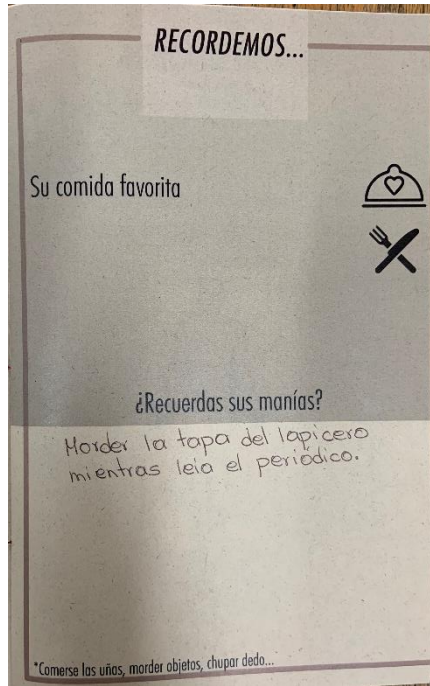 RECORDEMOS...
Su comida favorita
¿Recuerdas sus manías?
Morder la tapa del lapicero
mientras leía el periódico.
*Comerse las uñas, morder objetos, chupar dedo...